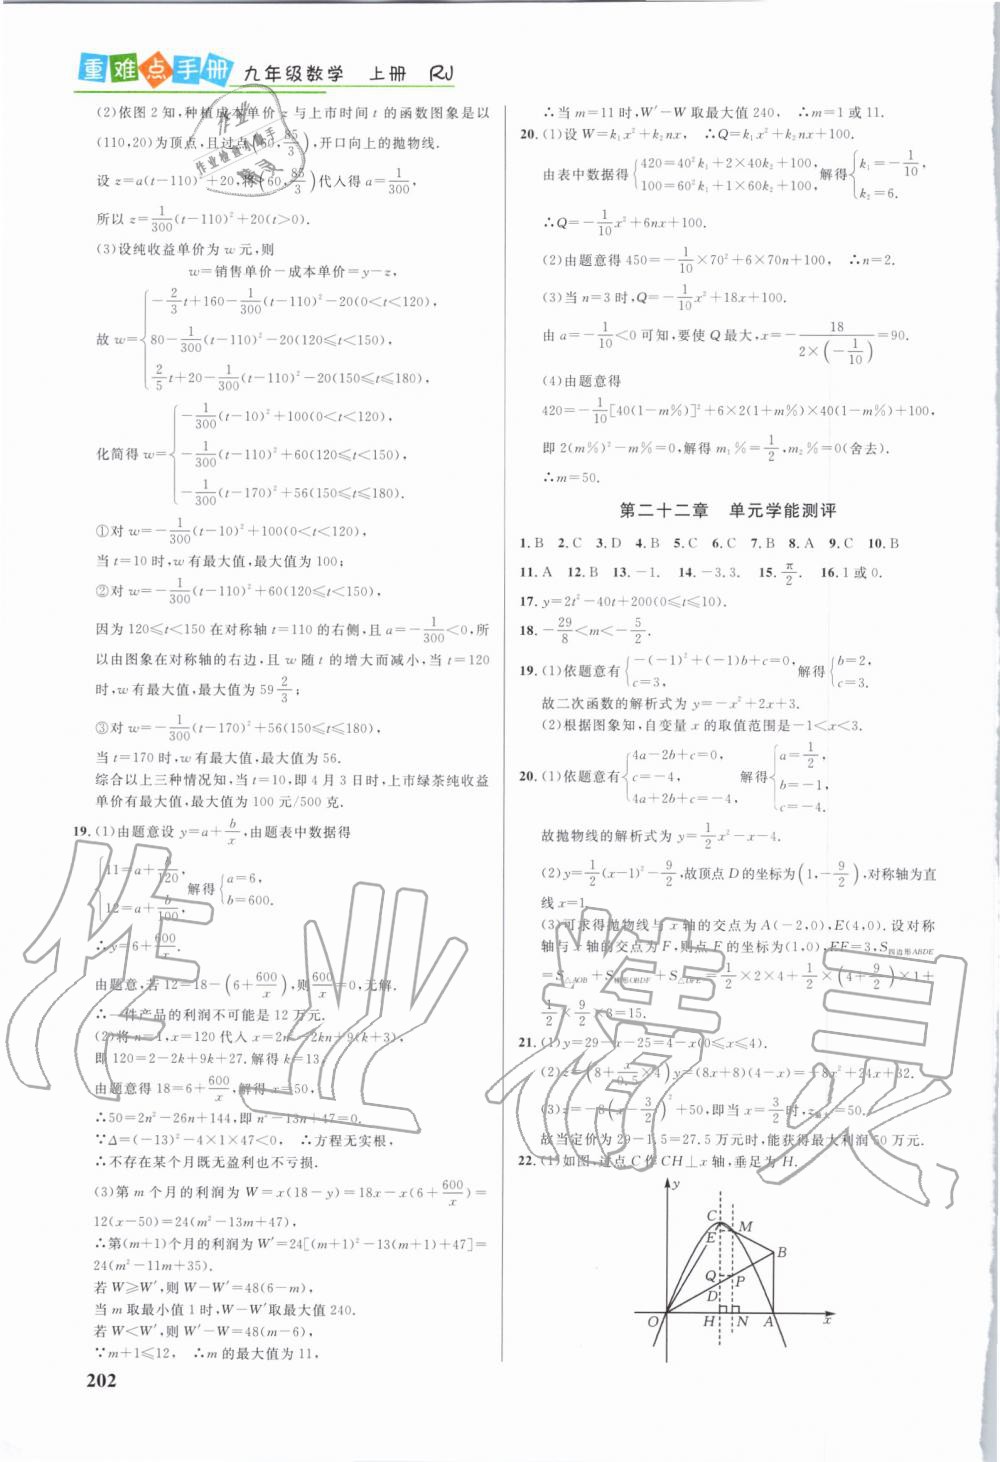 重难点手册 九年级数学 上册 RJ
(2)依图2知,种植成本单价z与上市时间t的函数图象是以
(110,20)为顶点,且过点(60,85/3),开口向上的抛物线.
设z=a(t-110)²+20,将(60,85/3)代入得a=1/300,
所以z=1/300(t-110)²+20(t>0).
(3)设纯收益单价为w元,则
w=销售单价-成本单价=y-z,
故w={-2/3t+160-1/300(t-110)²-20(0<t<120),
80-1/300(t-110)²-20(120≤t<150),
2/5t+20-1/300(t-110)²-20(150≤t≤180),
化简得w={-1/300(t-10)²+100(0<t<120),
-1/300(t-110)²+60(120≤t<150),
-1/300(t-170)²+56(150≤t≤180).
①对w=-1/300(t-10)²+100(0<t<120),
当t=10时,w有最大值,最大值为100;
②对w=-1/300(t-110)²+60(120≤t<150),
因为120≤t<150在对称轴t=110的右侧,且a=-1/300<0,所
以由图象在对称轴的右边,且w随t的增大而减小,当t=120
时,w有最大值,最大值为59 2/3;
③对w=-1/300(t-170)²+56(150≤t≤180),
当t=170时,w有最大值,最大值为56.
综合以上三种情况知,当t=10,即4月3日时,上市绿茶纯收益
单价有最大值,最大值为100元/500克.
19.(1)由题意设y=a+b/x,由题表中数据得
{11=a+b/120, 12=a+b/100 解得{a=6, b=600.
∴y=6+600/x.
由题意,若12=18-(6+600/x),则600/x=0,无解.
∴一件产品的利润不可能是12万元.
(2)将n=1,x=120代入x=2n²-2kn+9(k+3),
即120=2-2k+9k+27.解得k=13,
由题意得18=6+600/x,解得x=50,
∴50=2n²-26n+144,即n²-13n+47=0.
∵Δ=(-13)²-4×1×47<0,∴方程无实根,
∴不存在某个月既无盈利也不亏损.
(3)第m个月的利润为W=x(18-y)=18x-x(6+600/x)=
12(x-50)=24(m²-13m+47),
∴第(m+1)个月的利润为W′=24[(m+1)²-13(m+1)+47]=
24(m²-11m+35).
若W≥W′,则W-W′=48(6-m),
当m取最小值1时,W-W′取最大值240.
若W<W′,则W′-W=48(m-6),
∵m+1≤12,∴m的最大值为11,
202
∴当m=11时,W′-W取最大值240,∴m=1或11.
20.(1)设W=k₁x²+k₂nx,∴Q=k₁x²+k₂nx+100.
由表中数据得{420=40²k₁+2×40k₂+100, 100=60²k₁+1×60k₂+100. 解得{k₁=-1/10, k₂=6.
∴Q=-1/10x²+6nx+100.
(2)由题意得450=-1/10×70²+6×70n+100,∴n=2.
(3)当n=3时,Q=-1/10x²+18x+100.
由a=-1/10<0可知,要使Q最大,x=-18/(2×(-1/10))=90.
(4)由题意得
420=-1/10[40(1-m%)]²+6×2(1+m%)×40(1-m%)+100,
即2(m%)²-m%=0,解得m₁%=1/2,m₂%=0(舍去).
∴m=50.
第二十二章 单元学能测评
1.B 2.C 3.D 4.B 5.C 6.C 7.B 8.A 9.C 10.B
11.A 12.B 13.-1. 14.-3.3. 15.π/2. 16.1或0.
17.y=2t²-40t+200(0≤t≤10).
18.-29/8<m<-5/2.
19.(1)依题意有{-(-1)²+(-1)b+c=0, c=3, 解得{b=2, c=3.
故二次函数的解析式为y=-x²+2x+3.
(2)根据图象知,自变量x的取值范围是-1<x<3.
20.(1)依题意有{4a-2b+c=0, c=-4, 4a+2b+c=-4, 解得{a=1/2, b=-1, c=-4.
故抛物线的解析式为y=1/2x²-x-4.
(2)y=1/2(x-1)²-9/2,故顶点D的坐标为(1,-9/2),对称轴为直
线x=1.
(3)可求得抛物线与x轴的交点为A(-2,0),E(4,0).设对称
轴与x轴的交点为F,则点F的坐标为(1,0),EF=3,S四边形ABDE
=S△AOB+S梯形OBDF+S△DFE=1/2×2×4+1/2×(4+9/2)×1+
1/2×9/2×3=15.
21.(1)y=29-x-25=4-x(0≤x≤4).
(2)z=(8+x/0.5×4)y=(8x+8)(4-x)=-8x²+24x+32.
(3)z=-8(x-3/2)²+50,即当x=3/2时,z最大=50.
故当定价为29-1.5=27.5万元时,能获得最大利润50万元.
22.(1)如图,过点C作CH⊥x轴,垂足为H.
y
C
M
E
B
Q
P
D
O
H
N
A
x
作业
作业检查小帮手
作业精灵